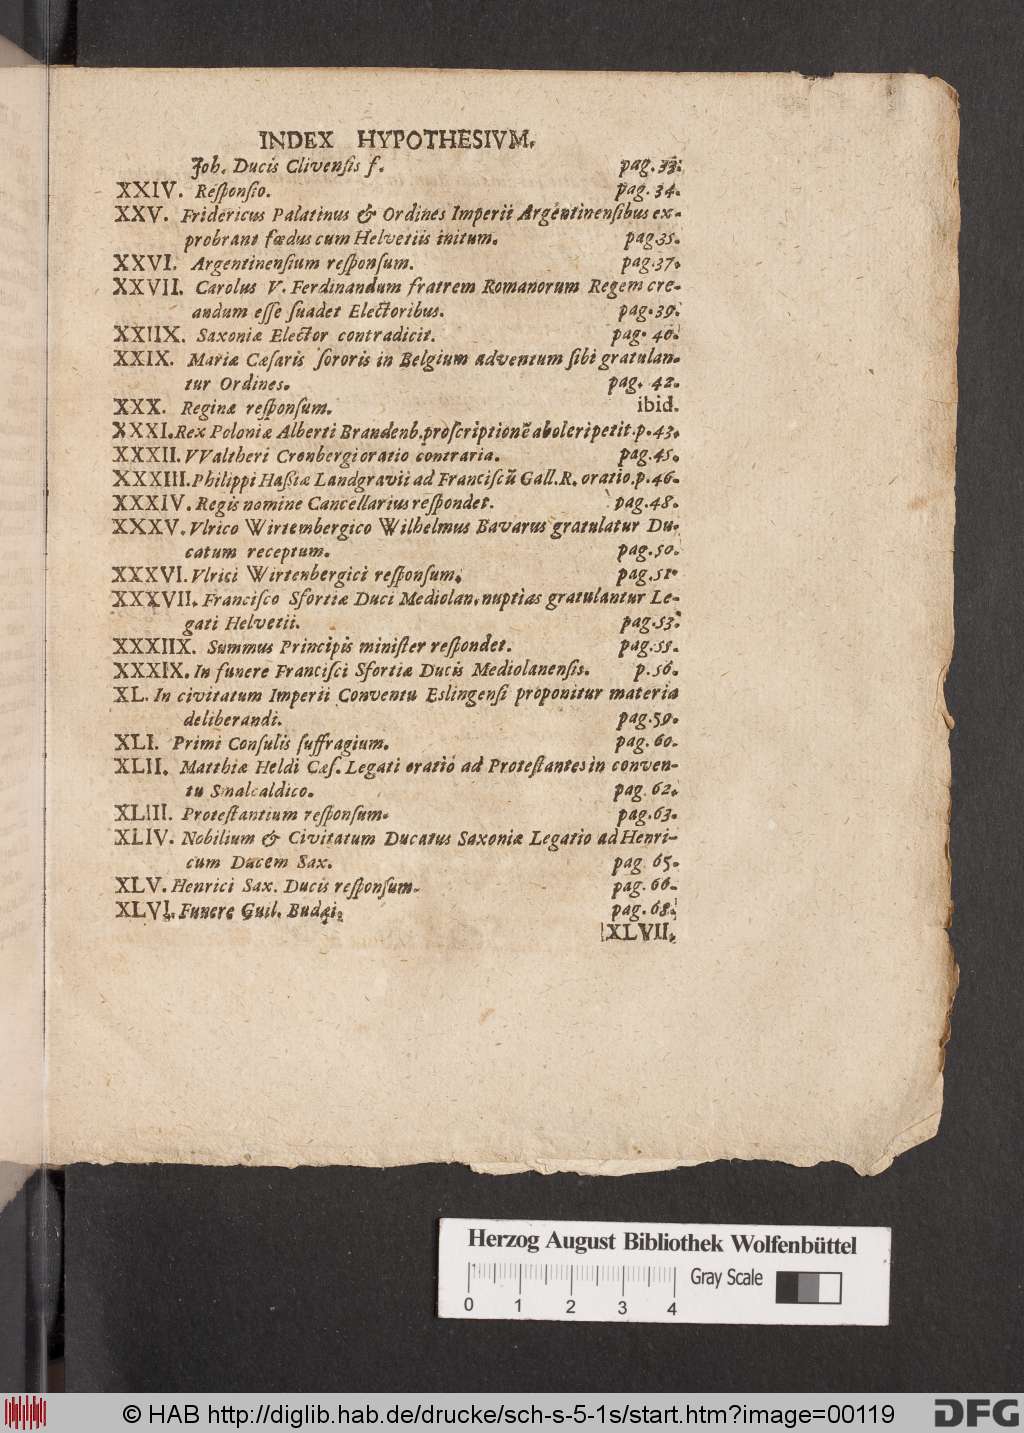 INDEX HYPOTHESIVM.
Joh. Ducis Clivenſis f. pag. 33.
XXIV. Reſponſio. pag. 34.
XXV. Fridericus Palatinus & Ordines Imperii Argentinenſibus ex-
probrant fœdus cum Helvetiis initum. pag.35.
XXVI. Argentinenſium reſponſum. pag.37.
XXVII. Carolus V. Ferdinandum fratrem Romanorum Regem cre-
andum eſſe ſuadet Electoribus. pag.39.
XXIIX. Saxoniæ Elector contradicit. pag. 40.
XXIX. Mariæ Cæſaris ſororis in Belgium adventum ſibi gratulan-
tur Ordines. pag. 42.
XXX. Reginæ reſponſum. ibid.
XXXI. Rex Poloniæ Alberti Brandenb. proſcriptionē aboleri petit. p. 43.
XXXII. VValtheri Cronbergi oratio contraria. pag.45.
XXXIII. Philippi Haſſiæ Landgravii ad Franciſcū Gall. R. oratio. p. 46.
XXXIV. Regis nomine Cancellarius reſpondet. pag.48.
XXXV. Vlrico Wirtembergico Wilhelmus Bavarus gratulatur Du-
catum receptum. pag.50.
XXXVI. Vlrici Wirtenbergici reſponſum. pag.51.
XXXVII. Franciſco Sfortiæ Duci Mediolan. nuptias gratulantur Le-
gati Helvetii. pag.53.
XXXIIX. Summus Principis miniſter reſpondet. pag.55.
XXXIX. In funere Franciſci Sfortiæ Ducis Mediolanenſis. p. 56.
XL. In civitatum Imperii Conventu Eslingenſi proponitur materia
deliberandi. pag.59.
XLI. Primi Conſulis ſuffragium. pag. 60.
XLII. Matthiæ Heldi Cæſ. Legati oratio ad Proteſtantes in conven-
tu Smalcaldico. pag. 62.
XLIII. Proteſtantium reſponſum. pag.63.
XLIV. Nobilium & Civitatum Ducatus Saxoniæ Legatio ad Henri-
cum Ducem Sax. pag. 65.
XLV. Henrici Sax. Ducis reſponſum. pag. 66.
XLVI. Funere Guil. Budæi. pag. 68.
XLVII.
Herzog August Bibliothek Wolfenbüttel
Gray Scale
0 1 2 3 4
© HAB http://diglib.hab.de/drucke/sch-s-5-1s/start.htm?image=00119
DFG